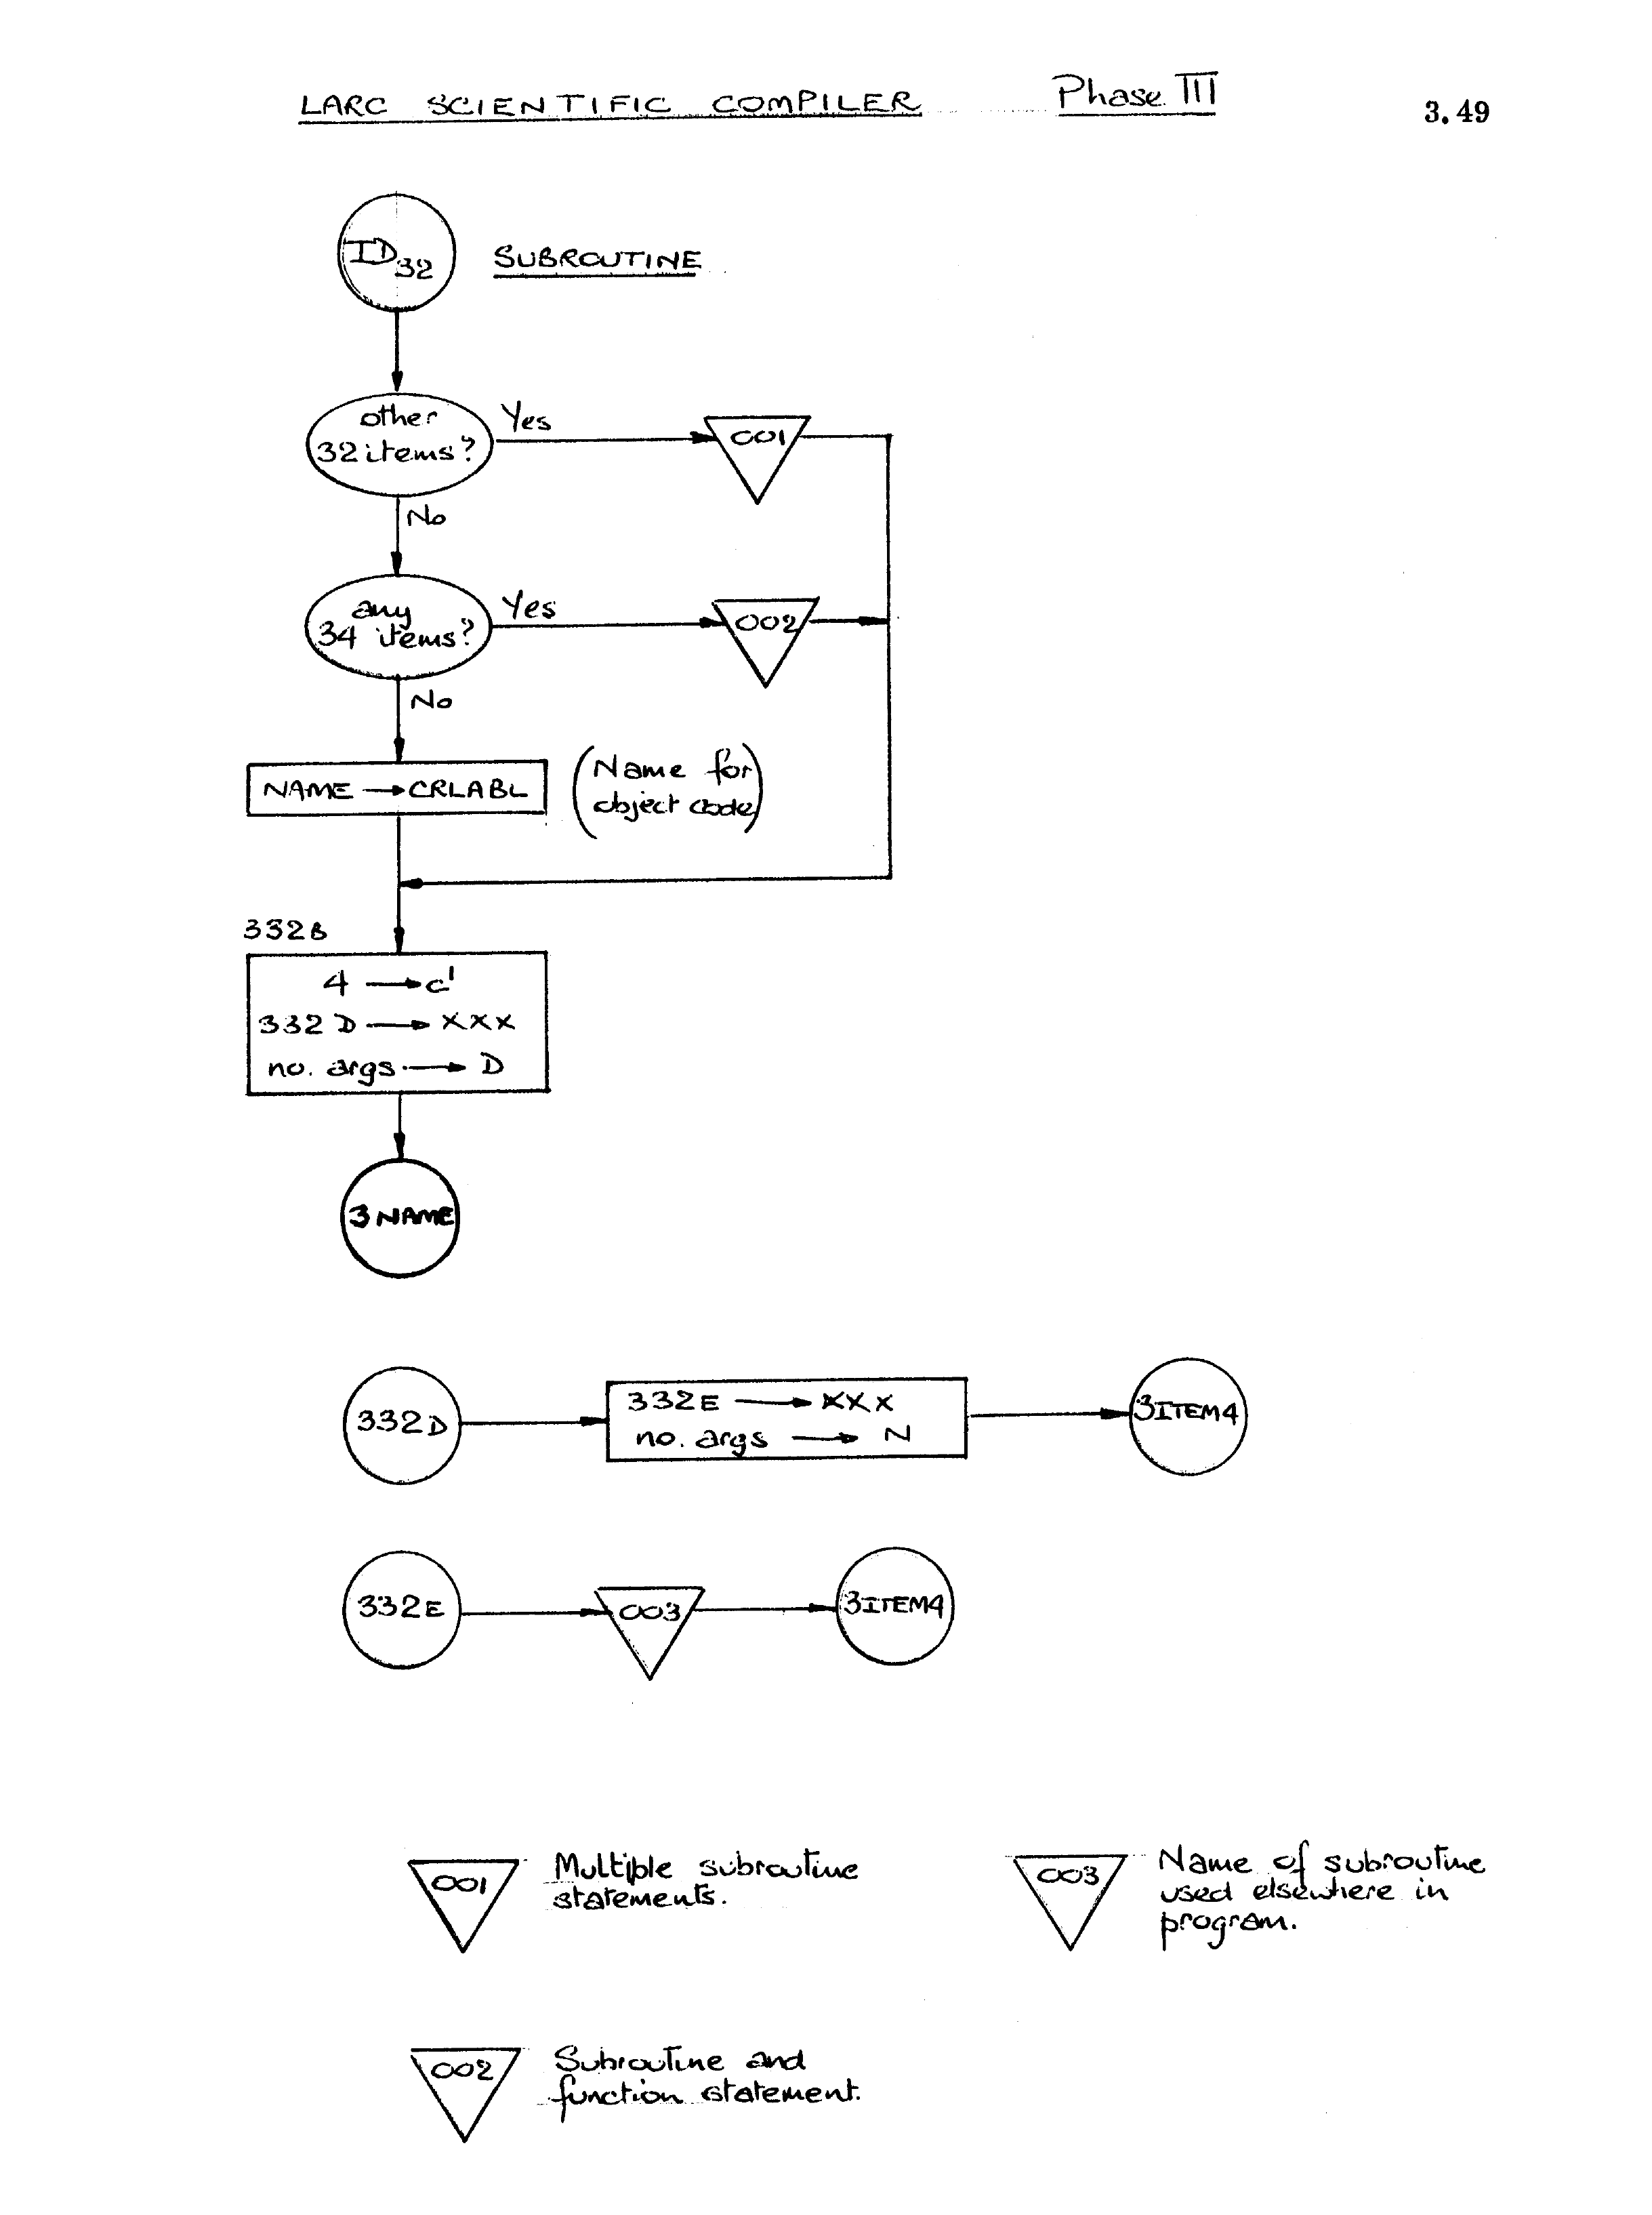 LARC SCIENTIFIC COMPILER Phase III 3.49
ID32 SUBROUTINE
other
32 items?
Yes
001
No
any
34 items?
Yes
002
No
NAME → CRLABL
(Name for
object code)
332B
4 → c'
332D → XXX
no. args → D
3 NAME
332D
332E → XXX
no. args → N
3ITEM4
332E
003
3ITEM4
001
Multiple subroutine
statements.
003
Name of subroutine
used elsewhere in
program.
002
Subroutine and
function statement.